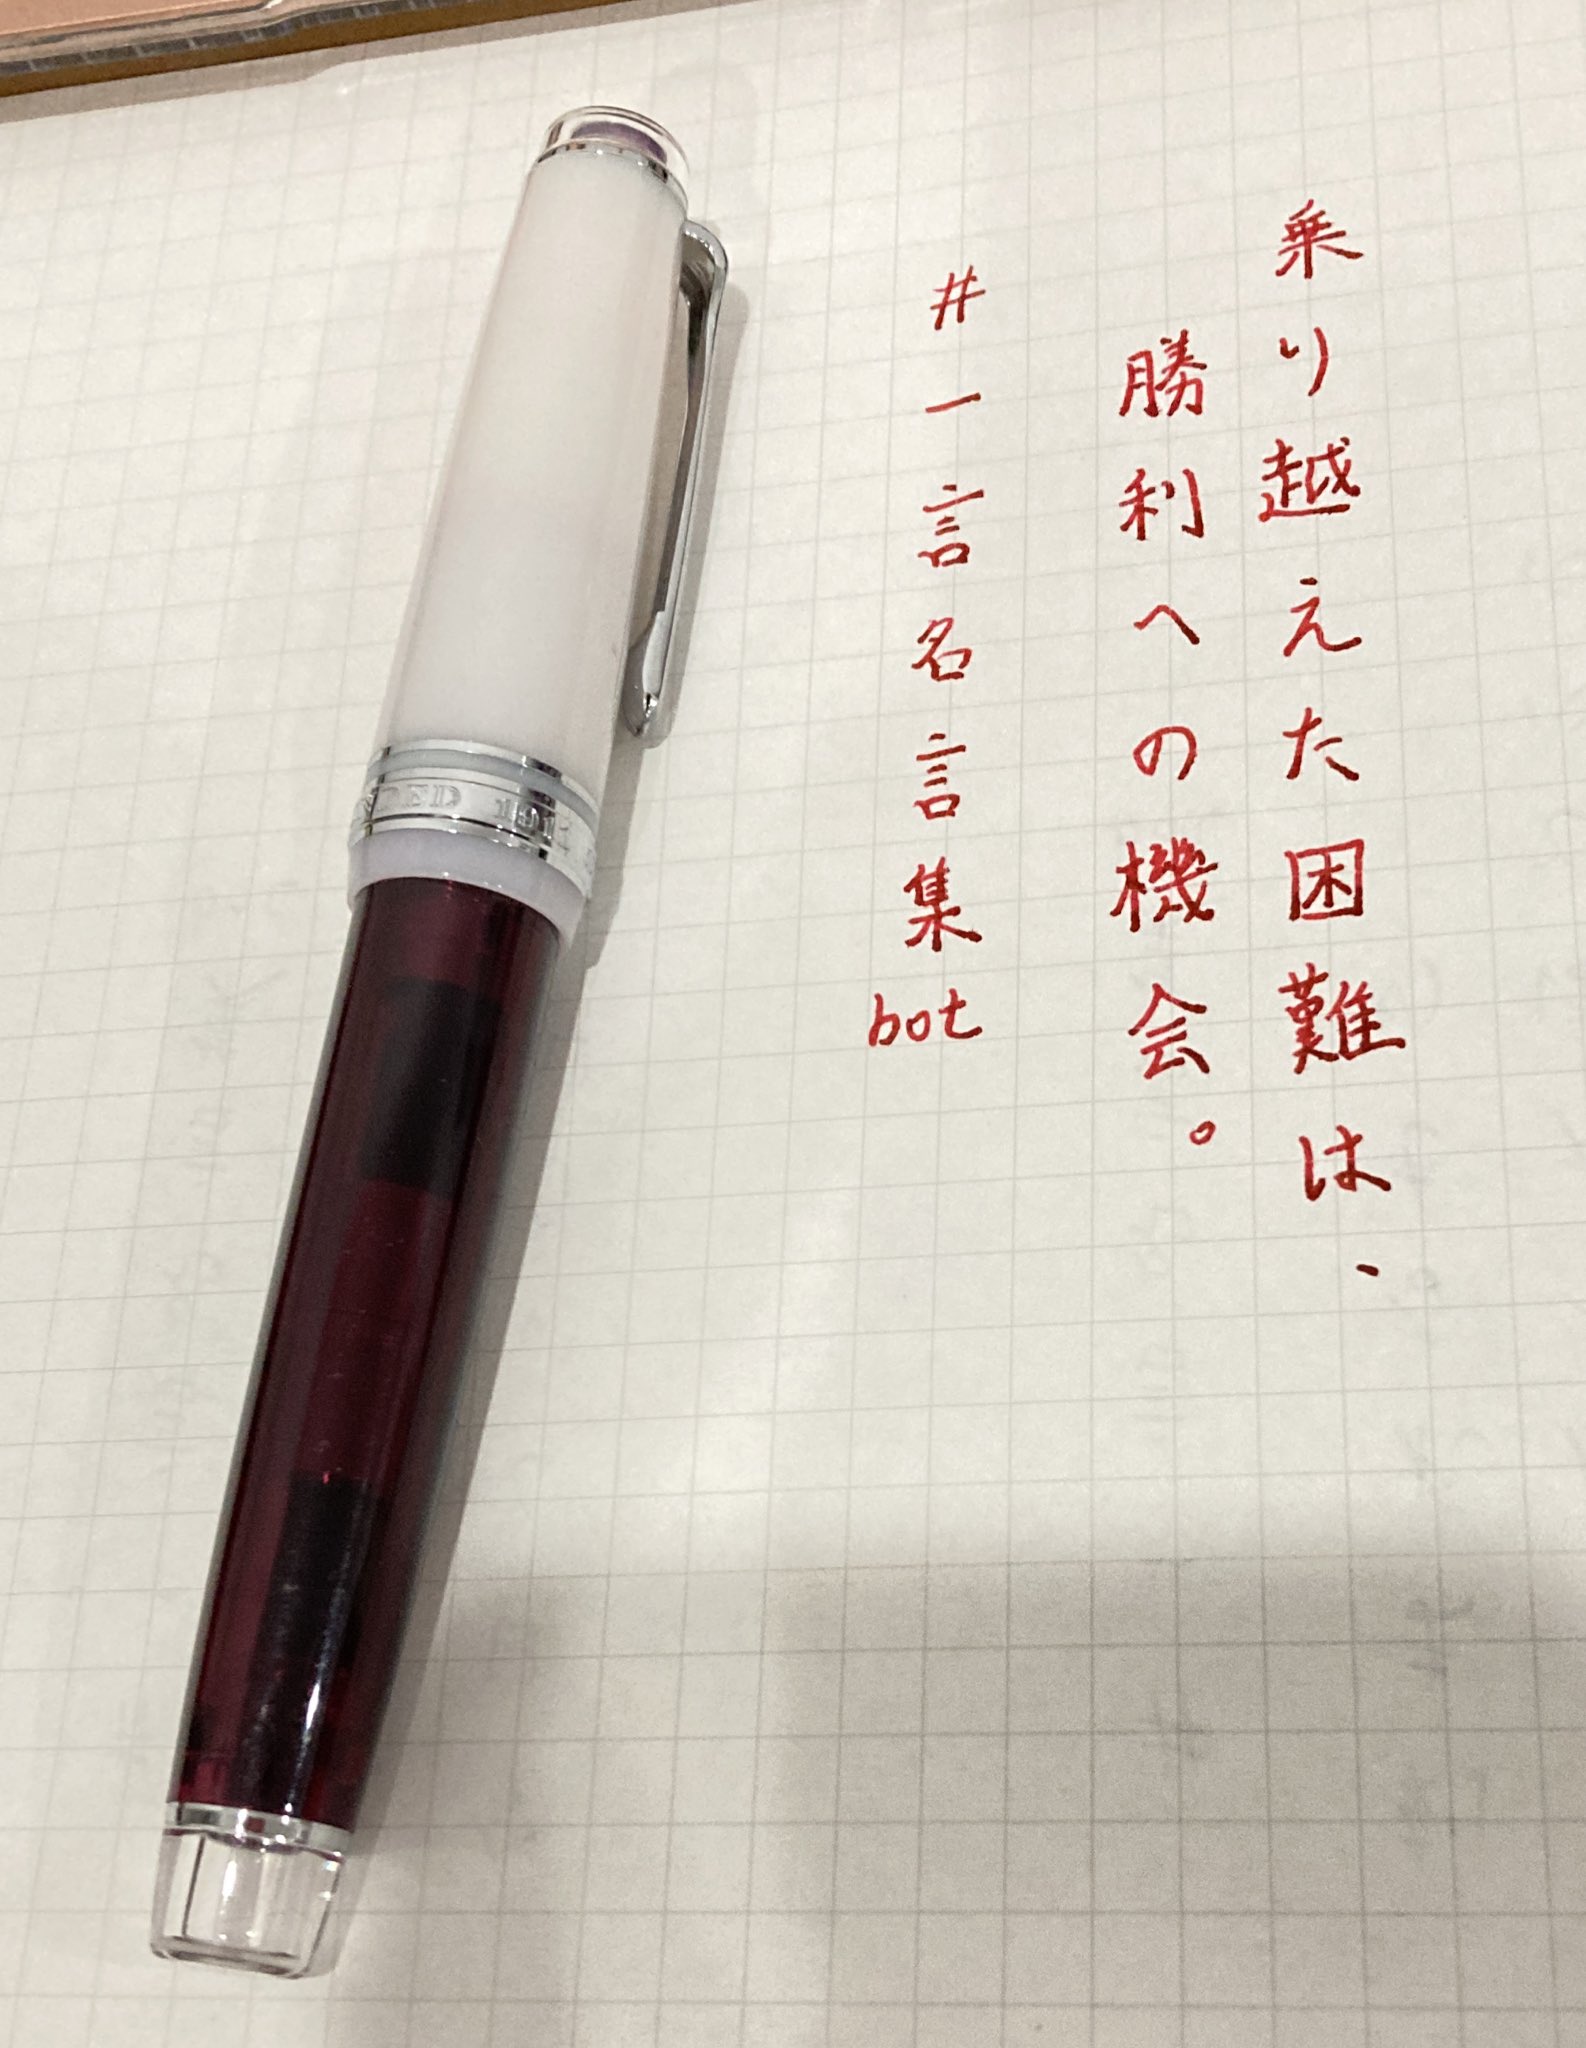 乗り越えた困難は、
勝利への機会。
#一言名言集bot
NDED 1911